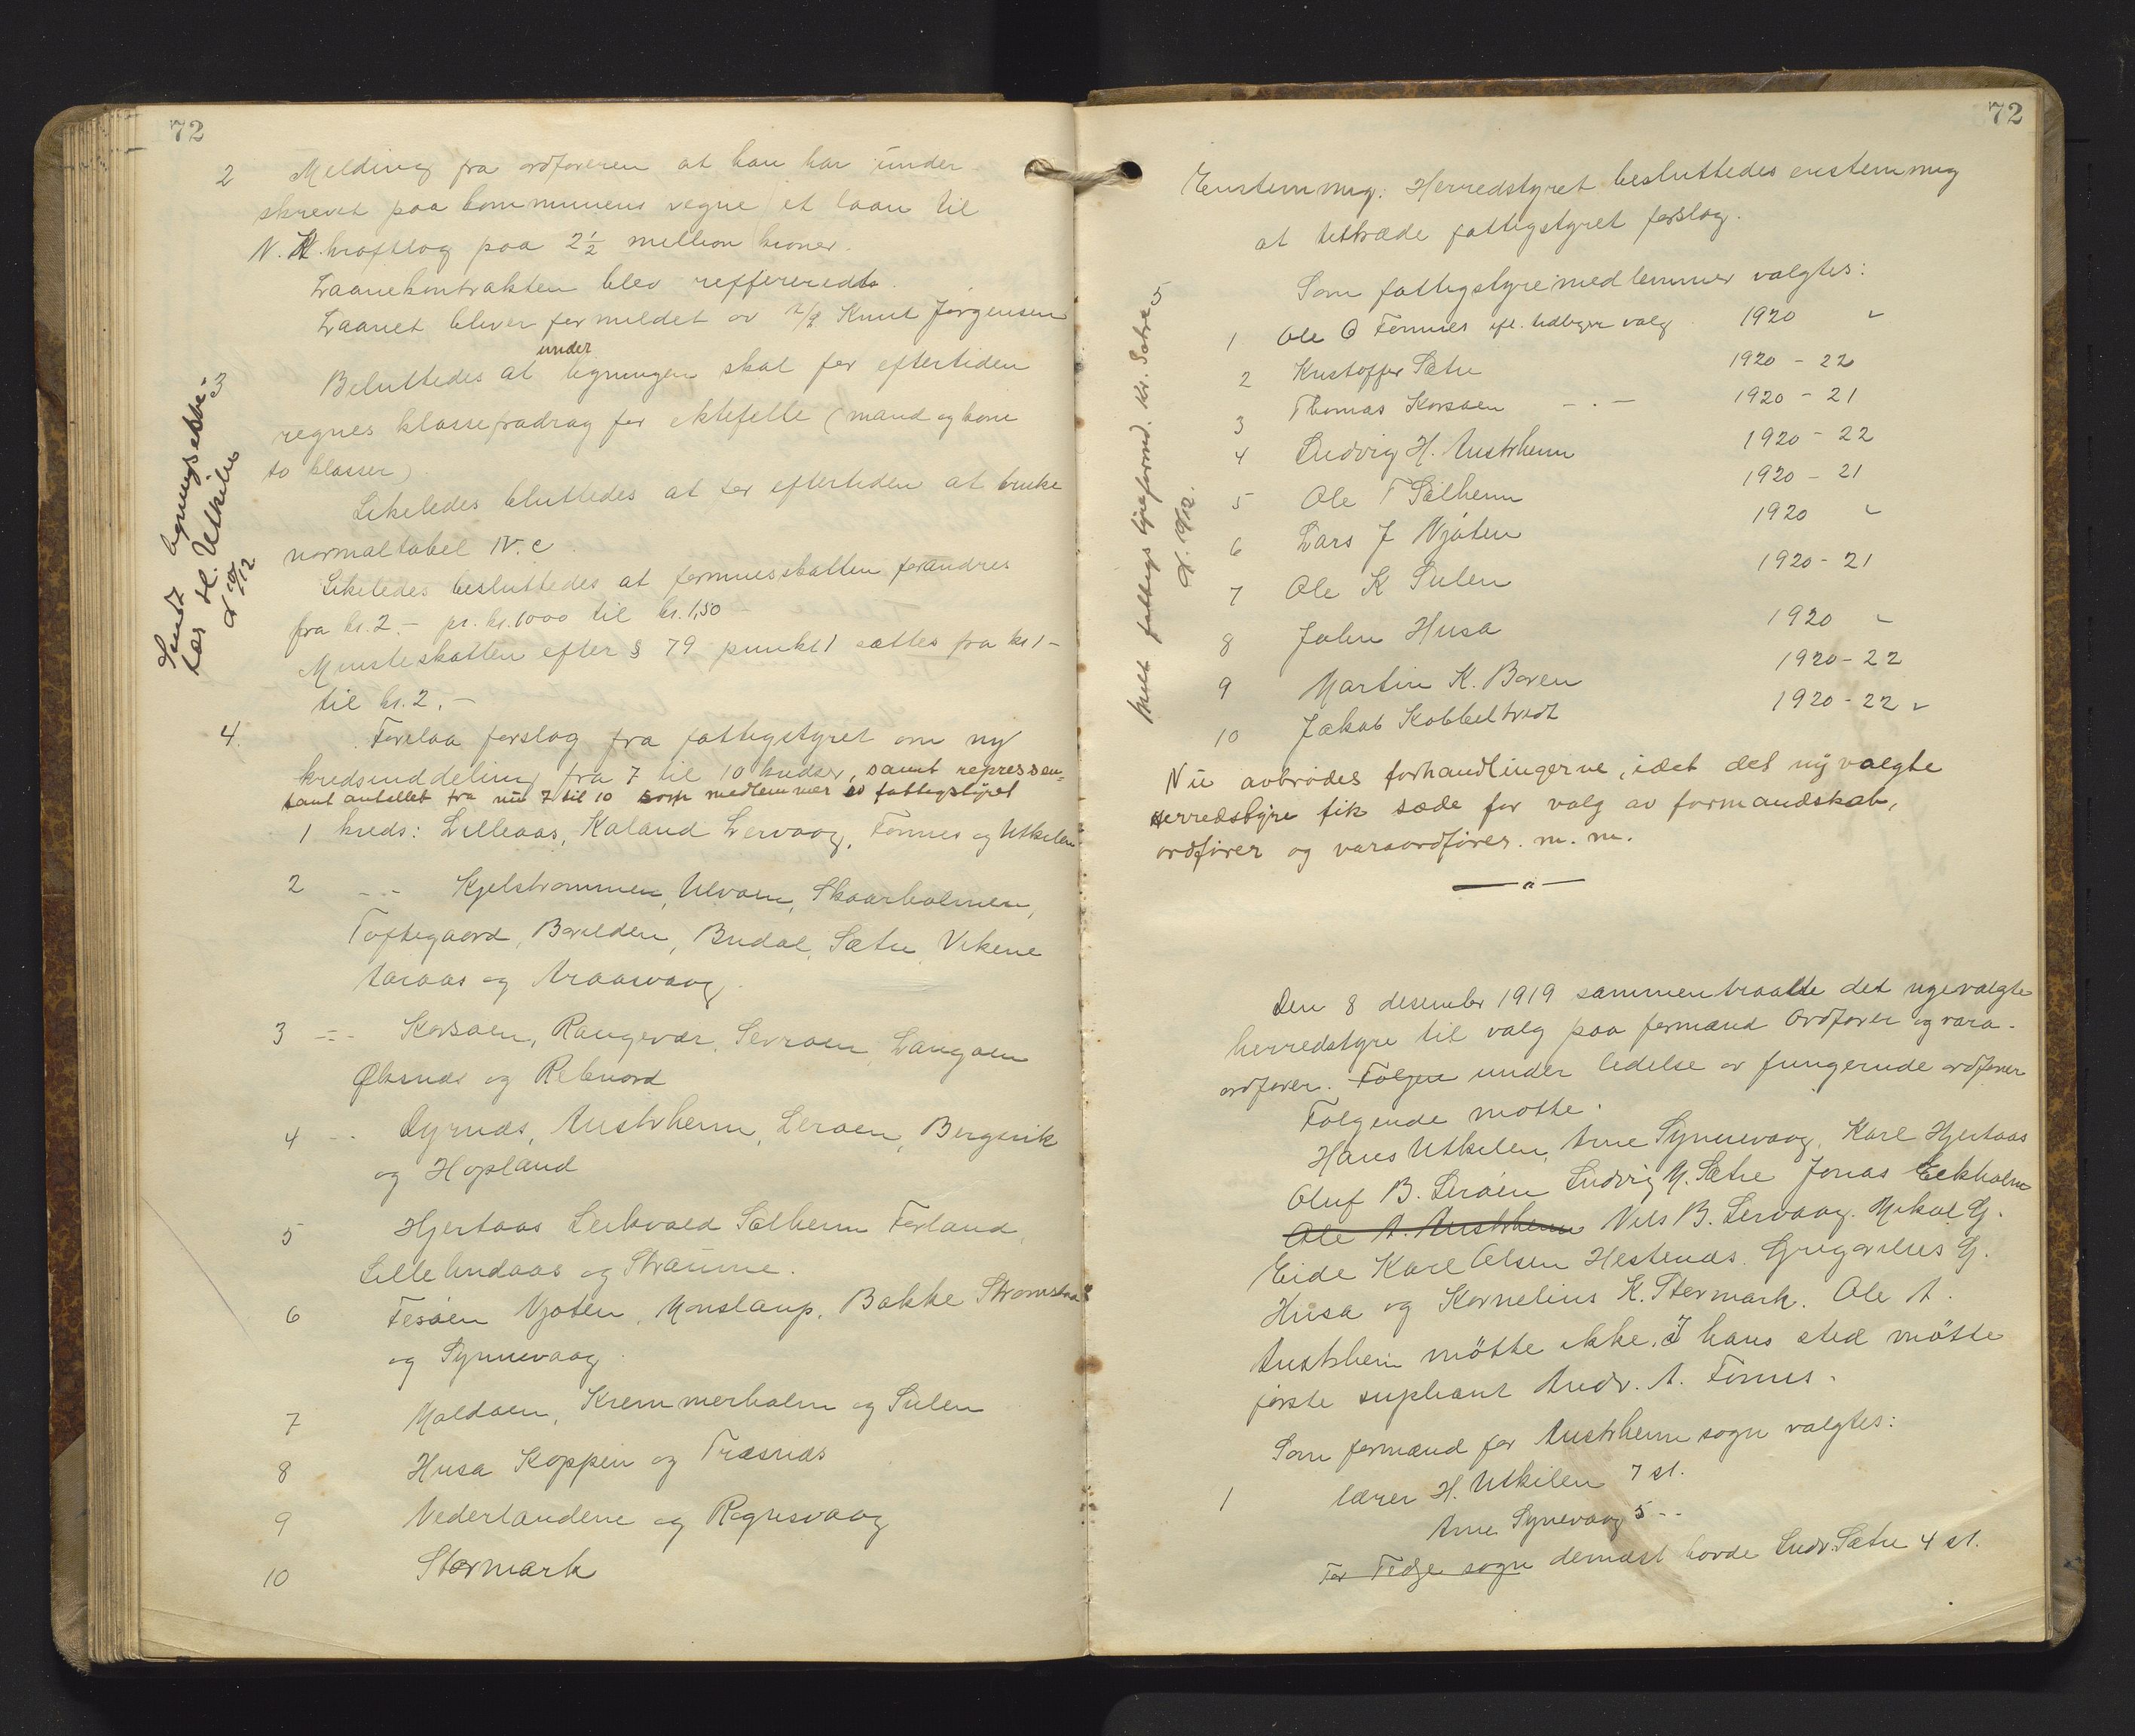 72
2 Melding fra ordføreren at han har under
skrevet paa kommunens vegne et laan til
N. H. kraftlag paa 2½ million kroner.
Laanekontrakten blev reffereredt.
Laanet bliver formidlet av A/S Knut Jørgensen
under
Besluttedes at ligningen skal for eftertiden
regnes klassefradrag for ektefelle (mand og kone
to klasser)
Likeledes bluttedes at for eftertiden at bruke
normaltabel IV. c.
Likeledes besluttedes at formuesskatten forandres
fra kr. 2.- pr. kr. 1000 til kr. 1,50 -
Minsteskatten efter § 79 punkt 1 sættes fra kr 1 -
til kr. 2. -
Sendt ligningssekr. 3
lær H. Utkilen
d 10/12
4. Forelaa forslag fra fattigstyret om ny
kredsinddeling fra 7 til 10 kredser, samt represen-
tant antallet fra nu 7 til 10 som medlemmer av fattigstyret
1 kreds: Lilleaas, Kaland Lervaag, Fonnes og Utkilen
2 -.- Kjelstrømmen, Ulvøen, Skaarholmen,
Toftegaard, Børilden, Budal, Sætre, Vikene
Aaraas og Araasvaag.
3 -.- Korsøen, Rangevær, Sævrøen Langøen
Øksnæs og Rebnord
4 -.- Dyrnæs, Austrheim, Lerøen, Bergsvik
og Hopland
5 Hjertaas Leikvold Solheim Førland,
Lille Lindaas og Straume.
6 Fesøen Njøten, Monslaup, Bakke Strømsnæs
og Synnevaag.
7 Moldøen, Kremmerholm og Sulen
8 Husa Koppen og Træsnæs
9 Nederlandene og Rognsvaag
10 Stormark
72
Enstemmig: Herredstyret besluttedes enstemmig
at tiltræde fattigstyret forslag.
Som fattigstyremedlemmer valgtes:
1 Ole O Fonnes efl. tidligere valg 1920 "
2 Kristoffer Sætre 1920 - 22
3 Thomas Korsøen -.- 1920 - 21
4 Ludvig H. Austrheim 1920 - 22
5 Ole T Solheim 1920 - 21
6 Lars J Njøten 1920 "
7 Ole K Sulen 1920 - 21
8 John Husa 1920 "
9 Martin K. Boren 1920 - 22
10 Jakob Kobbeltvedt 1920 - 22 "
Melt fattigstyreformd. Kr. Sætre 5
d. 10/12.
Nu avbrødes forhandlingerne, idet det nyvalgte
herredstyre fik sæde for valg av formandskab,
ordfører og varaordfører. m. m.
Den 8 desember 1919 sammentraatte det nyevalgte
herredstyre til valg paa formænd Ordfører og vara-
ordfører. Følgene under ledelse av fungerende ordfører
Følgende møtte:
Hans Utkilen, Arne Synnevaag, Karl Hjertaas
Oluf B. Lerøen Ludvig M. Sætre Jonas Eekholm
Ole A. Austrheim Nils B. Lervaag. Mikal G.
Eide Karl Olsen Hestenæs. Gregorius G.
Husa og Kornelius K. Stormark. Ole A.
Austrheim møtte ikke. I hans sted møtte
første supleant Andr. A. Fonnes.
Som formænd for Austrheim sogn valgtes:
1 lærer H. Utkilen 7 st.
Arne Synevaag 5 -.-
For Fedje sogn dernæst havde Ludv. Sætre 4 st.